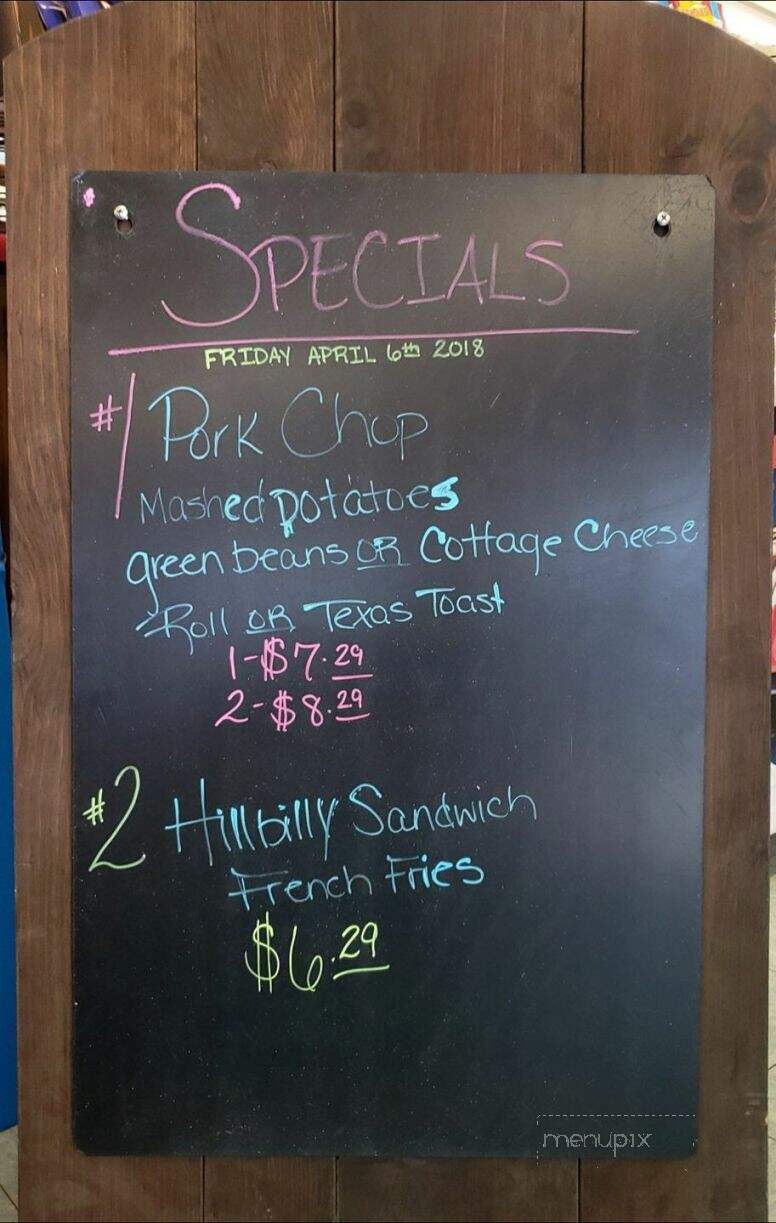 SPECIALS
FRIDAY APRIL 6th 2018
#1 Pork Chop
Mashed potatoes
green beans OR Cottage Cheese
Roll OR Texas Toast
1-$7.29
2-$8.29
#2 Hillbilly Sandwich
French Fries
$6.29
menupix